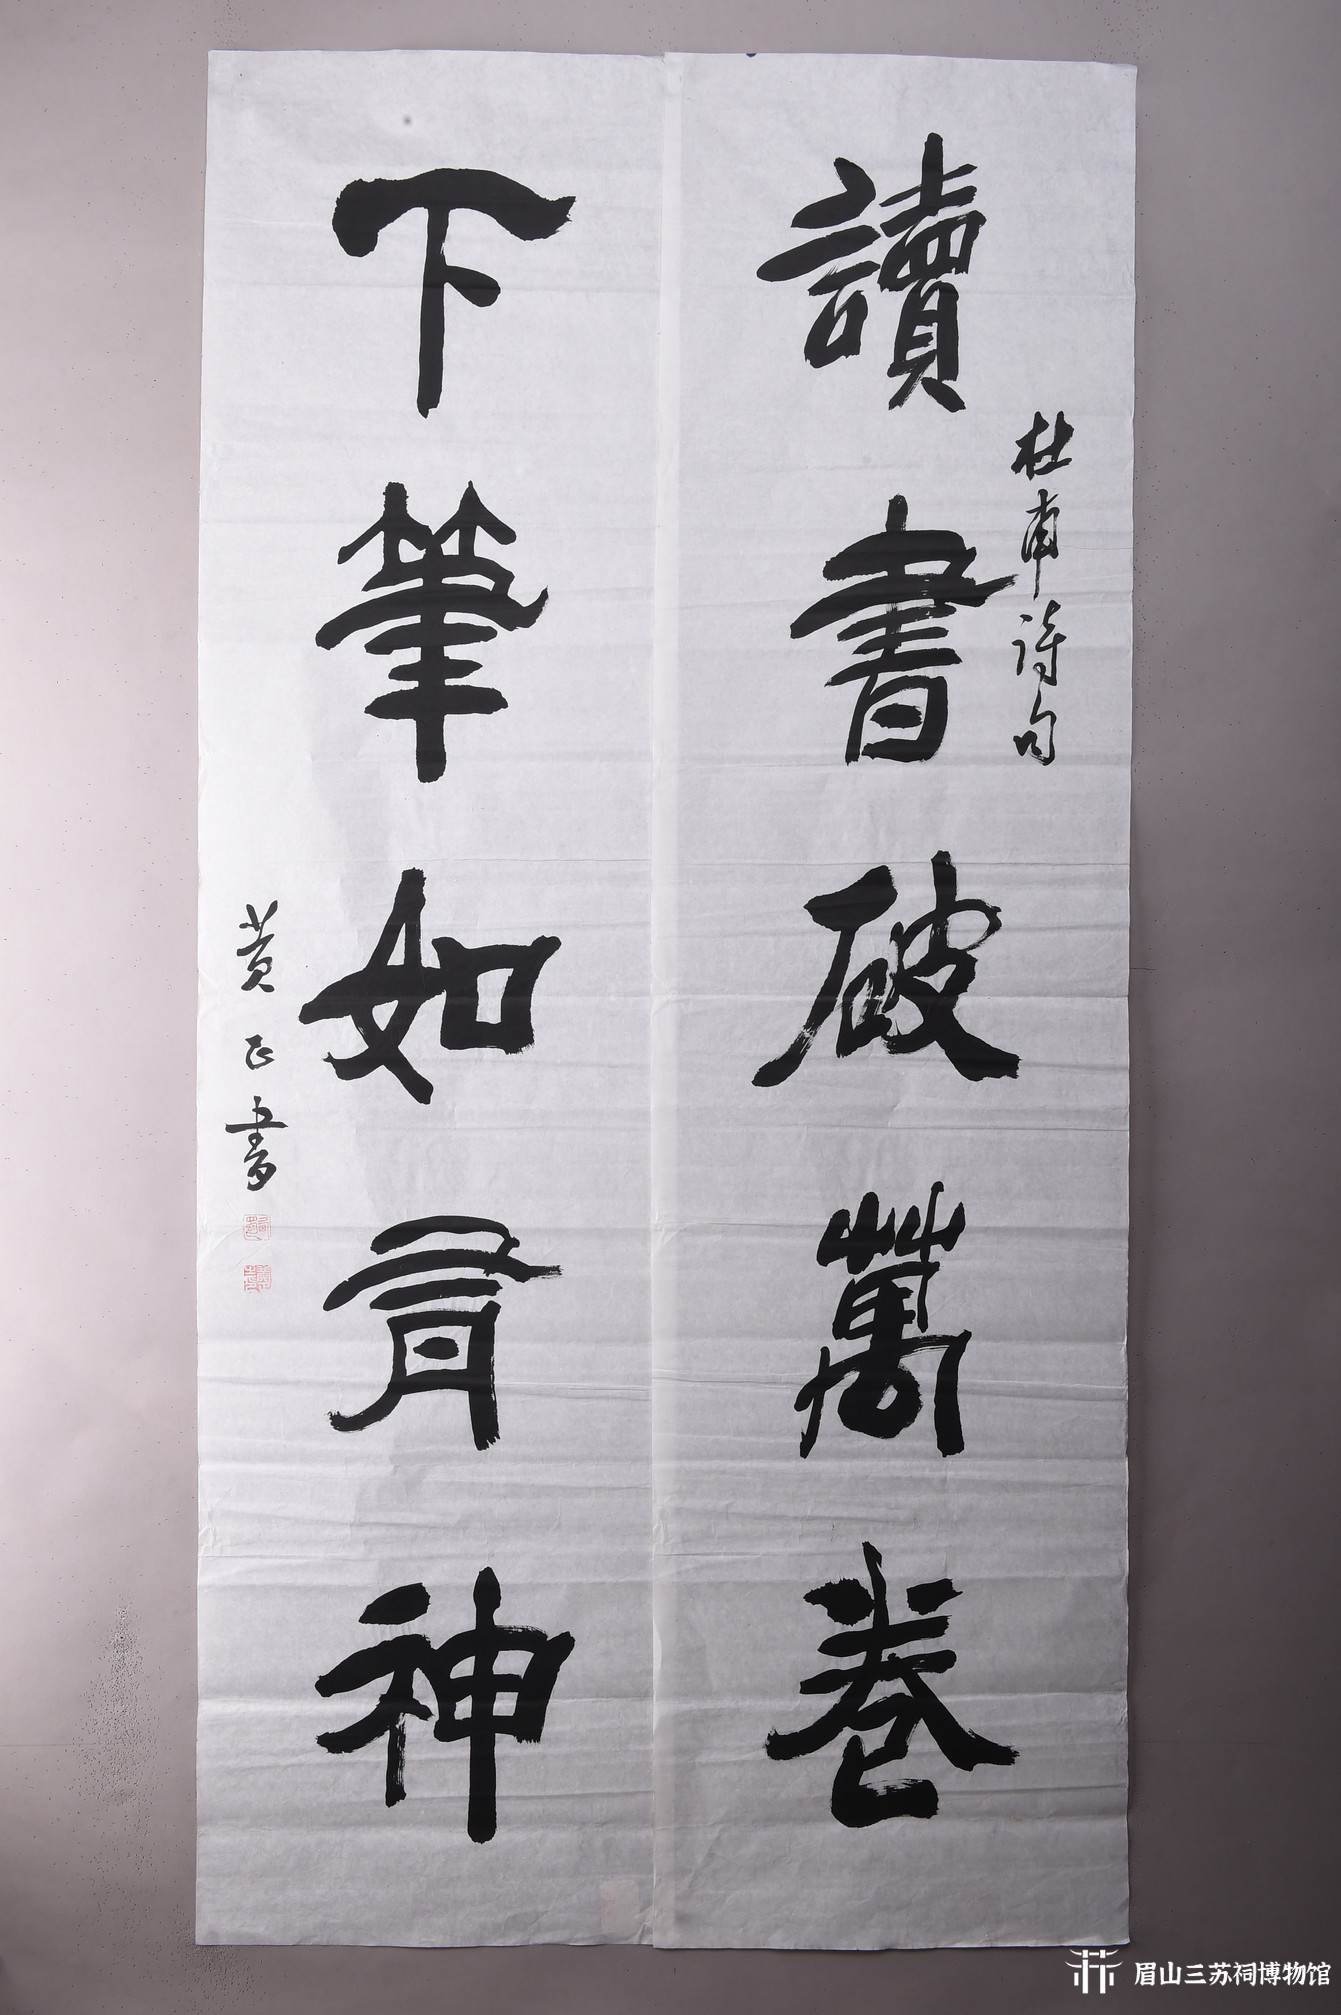 讀書破萬卷
杜甫詩句
下筆如有神
黄正書
眉山三苏祠博物馆